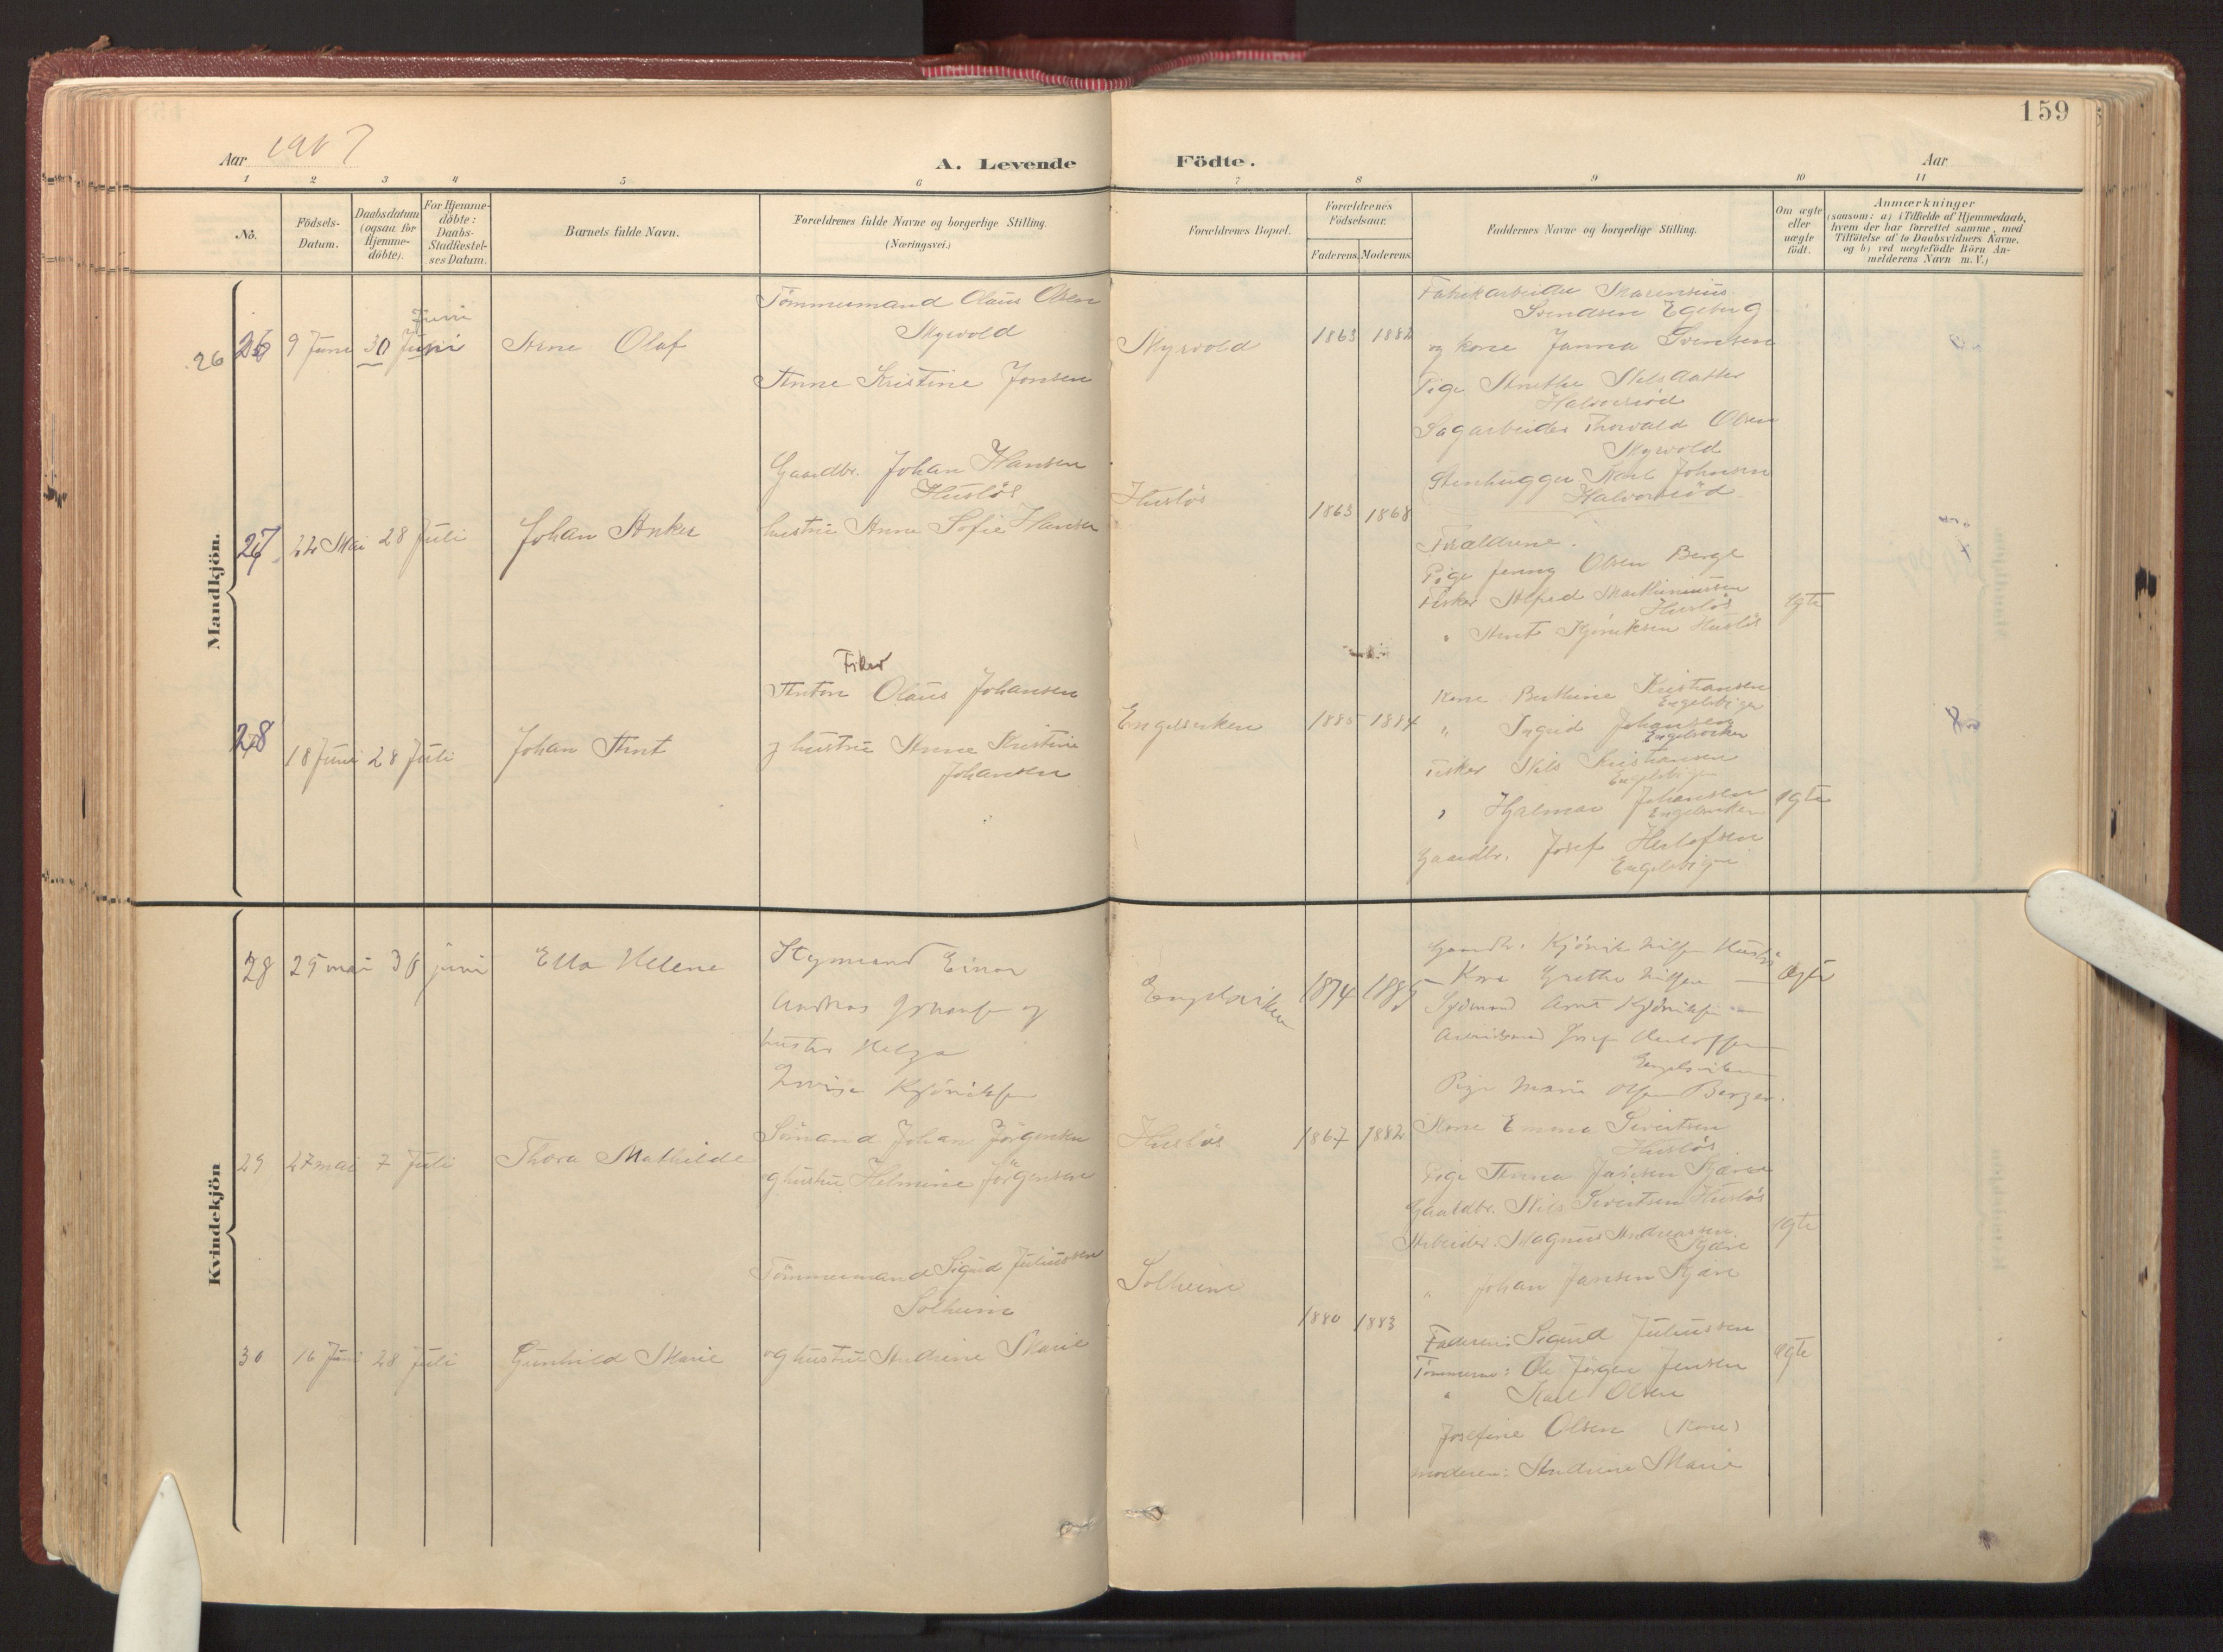 159
Aar 1907
A. Levende Födte.
Aar
1 2 3 4 5 6 7 8 9 10 11
No.
Födsels-
Datum.
Daabsdatum
(ogsaa for
Hjemme-
döbte).
For Hjemme-
döbte:
Daabs-
Stadfæstel-
ses Datum.
Barnets fulde Navn.
Forældrenes fulde Navne og borgerlige Stilling.
(Næringsvei.)
Forældrenes Bopæl.
Forældrenes
Födselsaar.
Faderens. Moderens.
Faddernes Navne og borgerlige Stilling.
Om ægte
eller
uægte
födt.
Anmærkninger
(saasom: a) i Tilfælde af Hjemmedaab,
hvem der har forrettet samme, med
Tilföielse af to Daabsvidners Navne,
og b) ved uægtefödte Börn An-
melderens Navn m. V.)
Mandkjön.
26 26 9 Juni 30 Juni
Juni
Arne Olaf
Tömmermand Olaus Olsen
Myrvold
Anne Kristine Jonsen
Myrvold
1863 1882
Fabrikarbeider Marensius
Svendsen Egeberg
og kone Janna Svendsen
Pige Anethe Nilsdatter
Halvorsröd
Sagarbeider Thorvald Olsen
Myrvold
Stenhugger Karl Johnsen
Halvorsröd
27 22 Mai 28 Juli
Johan Anker
Gaardbr. Johan Hansen
Huslös
hustru Anne Sofie Hansen
Huslös
1863 1868
Forældrene.
Pige Jenny Olsen Berge
Fisker Alfred Martiniussen
Huslös
" Arnt Kjöniksen Huslös
ægte
28 18 Juni 28 Juli
Johan Arnt
Fisker
Anton Olaus Johansen
og hustru Anne Kristine
Johansen
Engelsviken
1885 1884
Kone Berthine Kristiansen
" Ingrid Johansen
Engelsviken
Fisker Nils Kristiansen
" Hjalmar Johansen
Engelsviken
Gaardbr. Josef Herlofsen
ægte
Kvindekjön
28 25 mai 30 juni
Ella Helene
Styrmand Einar
Andreas Johansen og
hustru Helga
Lovise Kjöniksen
Engelsviken
1874 1885
Gaardbr. Kjönik Nilsen Huslös
Kone Grethe Nilsen
Sjömand Arnt Kjöniksen
Arbeidsmand Josef Herlofsen
Engelsviken
Pige Marie Olsen Berger.
ægte
29 27 mai 7 Juli
Thora Mathilde
Sömand Johan Jörgensen
og hustru Helmine Jörgensen
Huslös
1867 1882
Kone Emma Sivertsen
Huslös
Pige Anna Jansen Kjære
Gaardbr. Nils Sivertsen Huslös
Arbeider. Magnus Andreassen
Kjære
" Johan Jansen Kjære
ægte
30 16 Juni 28 Juli
Gunhild Marie
Tömmermand Sigurd Juliussen
Solheim
og hustru Andrine Marie
Solheim
1880 1883
Faderen: Sigurd Juliussen
Tömmerm: Ole Jörgen Jensen
" Karl Olsen
Josefine Olsen (Kone)
moderen: Andrine Marie
ægte